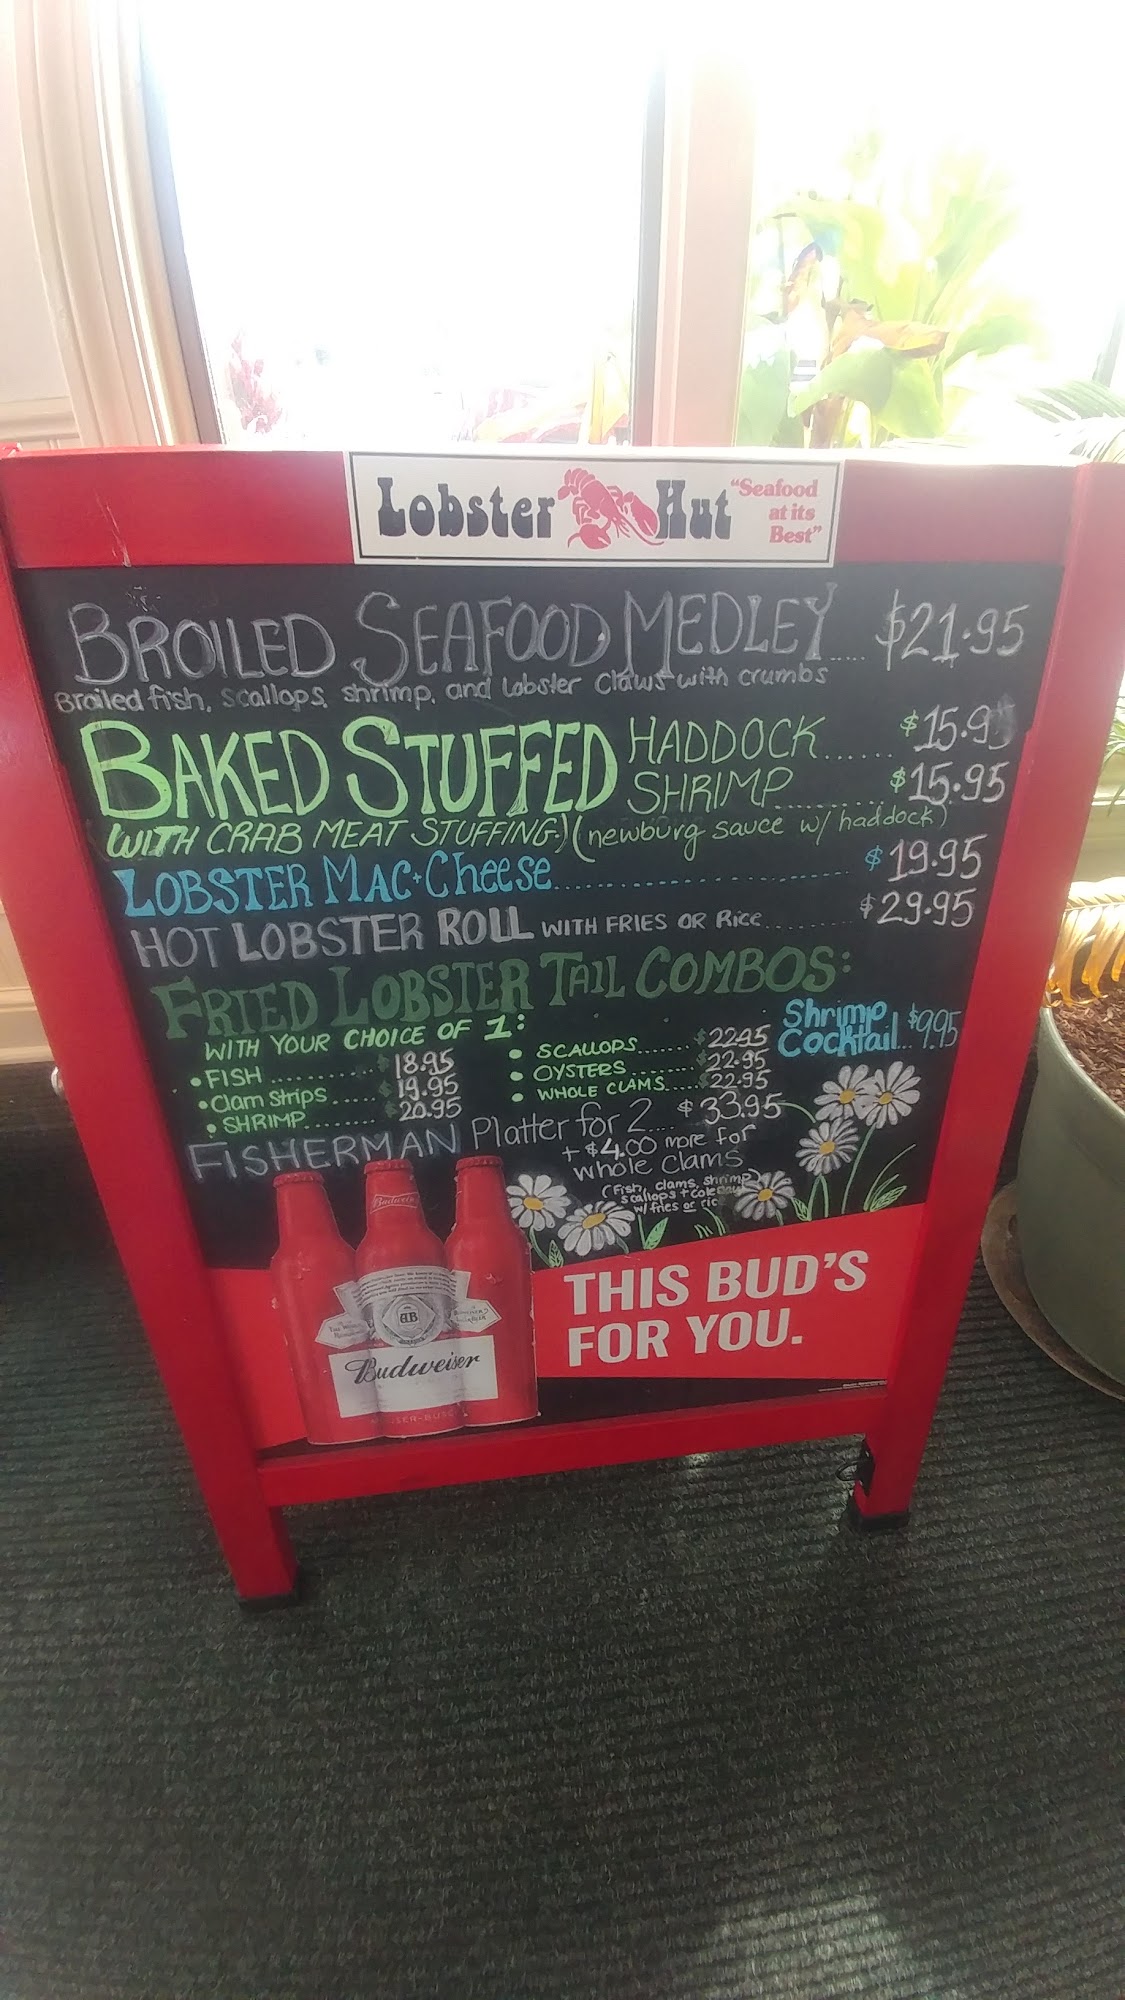 Lobster Hut "Seafood at its Best"
BROILED SEAFOOD MEDLEY..... $21.95
Broiled fish, scallops, shrimp, and lobster claws with crumbs
BAKED STUFFED HADDOCK...... $15.95
SHRIMP......... $15.95
(WITH CRAB MEAT STUFFING) (newburg sauce w/ haddock)
LOBSTER MAC + Cheese........................ $19.95
HOT LOBSTER ROLL WITH FRIES OR Rice........ $29.95
FRIED LOBSTER TAIL COMBOS:
WITH YOUR CHOICE OF 1:
• FISH .......... $18.95
• Clam Strips ..... $19.95
• SHRIMP........ $20.95
• SCALLOPS....... $22.95
• OYSTERS........ $22.95
• WHOLE CLAMS..... $22.95
Shrimp
Cocktail... $9.95
FISHERMAN Platter for 2.... $33.95
+ $4.00 more for
whole Clams
(Fish, clams, shrimp,
scallops +
w/ fries or
Budweiser
AB
Budweiser
THIS BUD'S
FOR YOU.